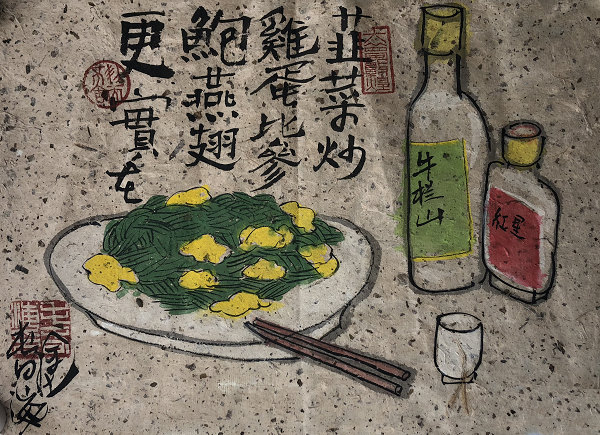 韮菜炒
雞蛋比參
鮑燕翅
更實在
牛栏山
紅星